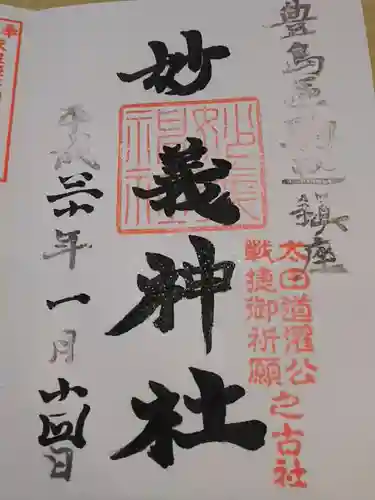 豊島區駒込鎮座
太田道灌公之古社
戦捷御祈願
妙義神社
平成三十年一月廿四日